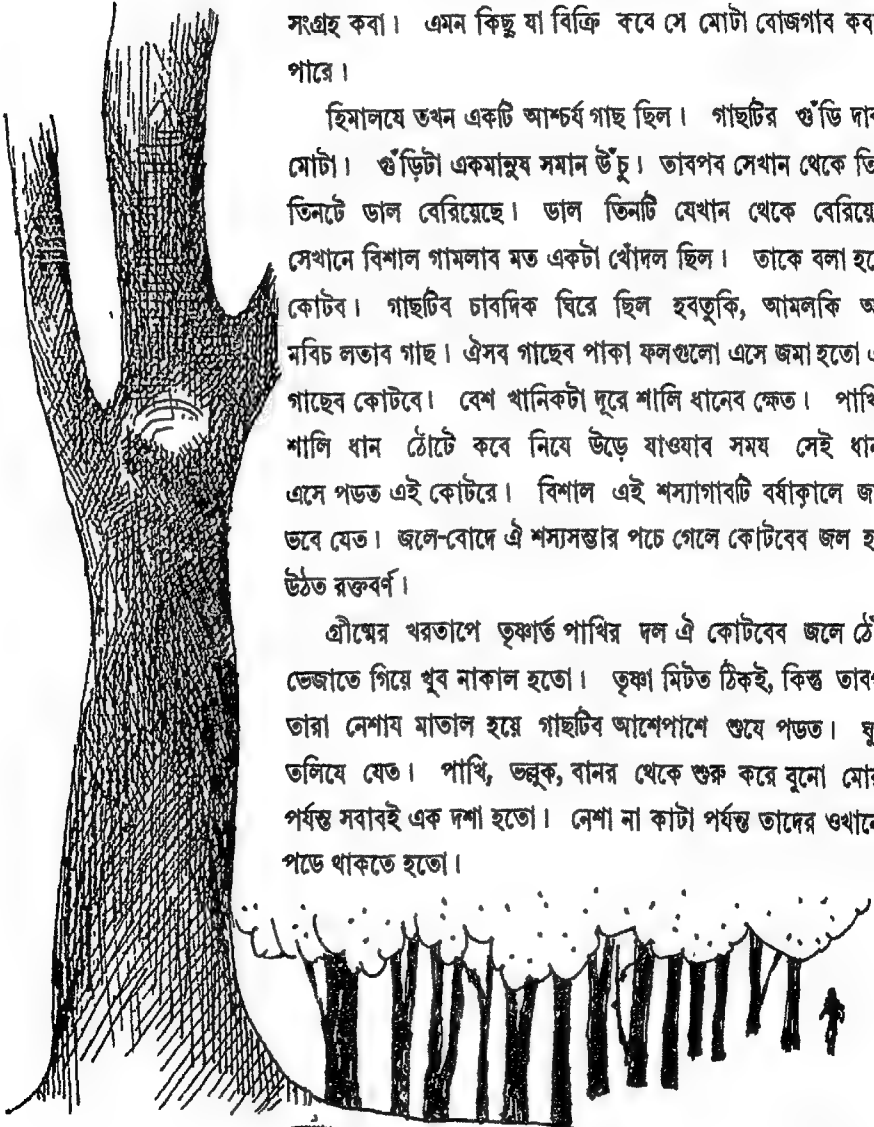 সংগ্রহ কবা। এমন কিছু যা বিক্রি কবে সে মোটা বোজগাব কব
পারে।
হিমালযে তখন একটি আশ্চর্য গাছ ছিল। গাছটির গুঁড়ি দাব
মোটা। গুঁড়িটা একমানুষ সমান উঁচু। তাবপব সেখান থেকে তি
তিনটে ডাল বেরিয়েছে। ডাল তিনটি যেখান থেকে বেরিয়ে
সেখানে বিশাল গামলাব মত একটা খোঁদল ছিল। তাকে বলা হ
কোটব। গাছটিব চাবদিক ঘিরে ছিল হবতুকি, আমলকি আ
মবিচ লতাব গাছ। ঐসব গাছেব পাকা ফলগুলো এসে জমা হতো এ
গাছেব কোটবে। বেশ খানিকটা দূরে শালি ধানেব ক্ষেত। পাখি
শালি ধান ঠোঁটে কবে নিযে উড়ে যাওযাব সময সেই ধান
এসে পডত এই কোটরে। বিশাল এই শস্যাগাবটি বর্ষাকালে জ
ভবে যেত। জলে-বোদে ঐ শস্যসম্ভার পচে গেলে কোটবেব জল হ
উঠত রক্তবর্ণ।
গ্রীষ্মের খরতাপে তৃষ্ণার্ত পাখির দল ঐ কোটবেব জলে ঠোঁ
ভেজাতে গিয়ে খুব নাকাল হতো। তৃষ্ণা মিটত ঠিকই, কিন্তু তাবপ
তারা নেশায মাতাল হয়ে গাছটিব আশেপাশে শুযে পডত। ঘু
তলিযে যেত। পাখি, ভল্লুক, বানর থেকে শুরু করে বুনো মোর
পর্যন্ত সবাবই এক দশা হতো। নেশা না কাটা পর্যন্ত তাদের ওখানে
পডে থাকতে হতো।